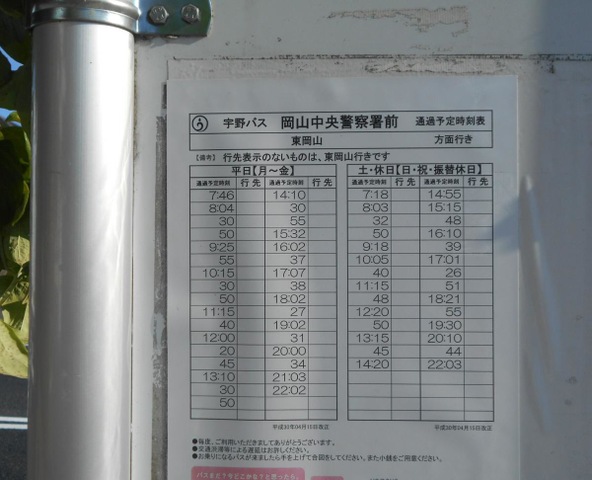 う 宇野バス 岡山中央警察署前 通過予定時刻表
東岡山 方面行き
【備考】 行先表示のないものは、東岡山行きです
平日【月～金】 土・休日【日・祝・振替休日】
通過予定時刻 行先 通過予定時刻 行先 通過予定時刻 行先 通過予定時刻 行先
7:46 14:10 7:18 14:55
8:04 30 8:03 15:15
30 55 32 48
50 15:32 50 16:10
9:25 16:02 9:18 39
55 37 10:05 17:01
10:15 17:07 40 26
30 38 11:15 51
50 18:02 48 18:21
11:15 27 12:20 55
40 19:02 50 19:30
12:00 31 13:15 20:10
20 20:00 45 44
45 34 14:20 22:03
13:10 21:03
30 22:02
50
平成30年04月15日改正 平成30年04月15日改正
●毎度、ご利用いただきましてありがとうございます。
●交通渋滞等による遅延はお許しください。
●お乗りになるバスが来ましたら手を上げて合図をしてください。また小銭をご用意ください。
バスをどう今どこかな？と思ったら、